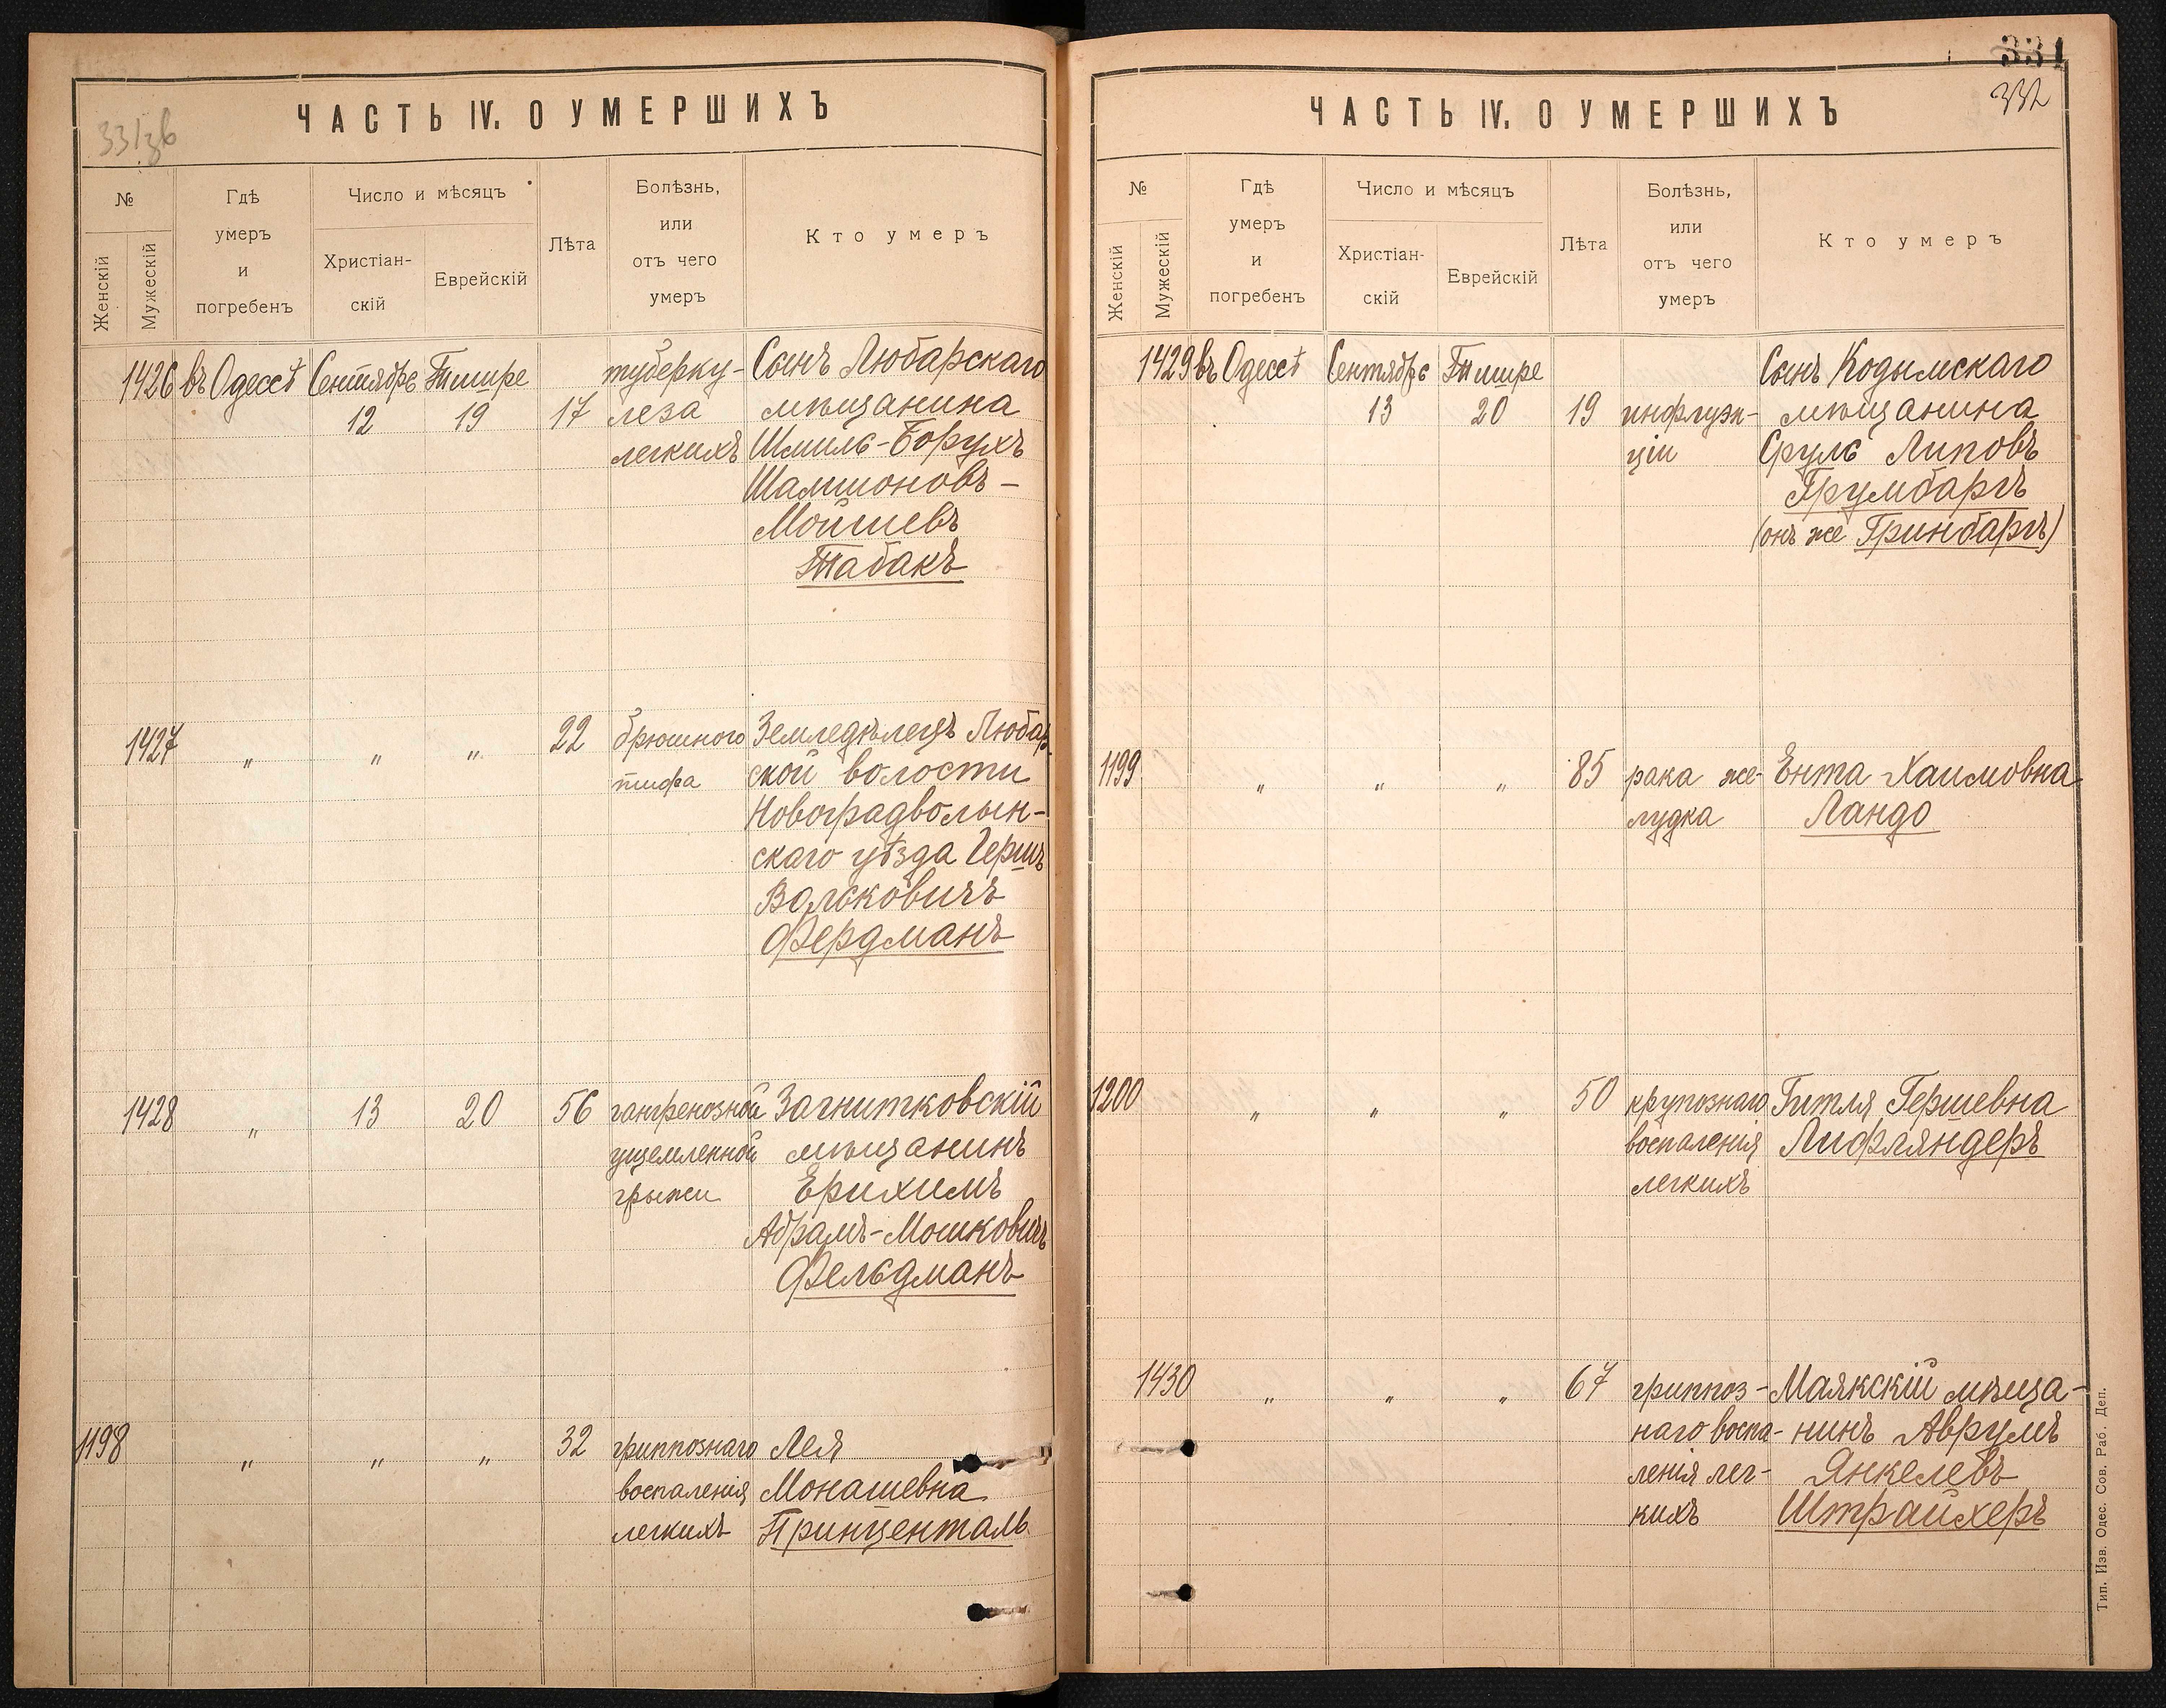 331зв
ЧАСТЬ IV. О УМЕРШИХЪ
№
Женскій
Мужескій
Гдѣ
умеръ
и
погребенъ
Число и мѣсяцъ
Христіан-
скій
Еврейскій
Лѣта
Болѣзнь,
или
отъ чего
умеръ
Кто умеръ
1426 въ Одессѣ Сентября Тишре туберку- Сынъ Любарскаго
12 19 17 леза мѣщанина
легкихъ Шмиль-Борухъ
Шамшоновъ-
Мойшевъ
Табакъ
1427 " " " 22 брюшного Земледѣлецъ Любар-
тифа ской волости
Новоградволын-
скаго уѣзда Гершъ
Вольковичъ
Фердманъ
1428 " 13 20 56 гангренозной Загнитковскій
ущемленной мѣщанинъ
грыжи Ерихимъ
Абрамъ-Мошковичъ
Фельдманъ
1198 " " " 32 гриппознаго Лея
воспаленія Монашевна
легкихъ Принценталь
331
332
ЧАСТЬ IV. О УМЕРШИХЪ
№
Женскій
Мужескій
Гдѣ
умеръ
и
погребенъ
Число и мѣсяцъ
Христіан-
скій
Еврейскій
Лѣта
Болѣзнь,
или
отъ чего
умеръ
Кто умеръ
1429 въ Одессѣ Сентября Тишре Сынъ Кодымскаго
13 20 19 инфлуэн- мѣщанина
ціи Сруль Липовъ
Грумбаргъ
(онъ же Гринбаргъ)
1199 " " " 85 рака же- Ента Хаимовна
лудка Ландо
1200 " " " 50 крупознаго Гитля Гершевна
воспаленія Лифляндеръ
легкихъ
1430 " " " 67 гриппоз- Маякскій мѣща-
наго воспа- нинъ Аврумъ
ленія лег- Янкелевъ
кихъ Штрайхеръ
Тип. Изв. Одес. Сов. Раб. Деп.